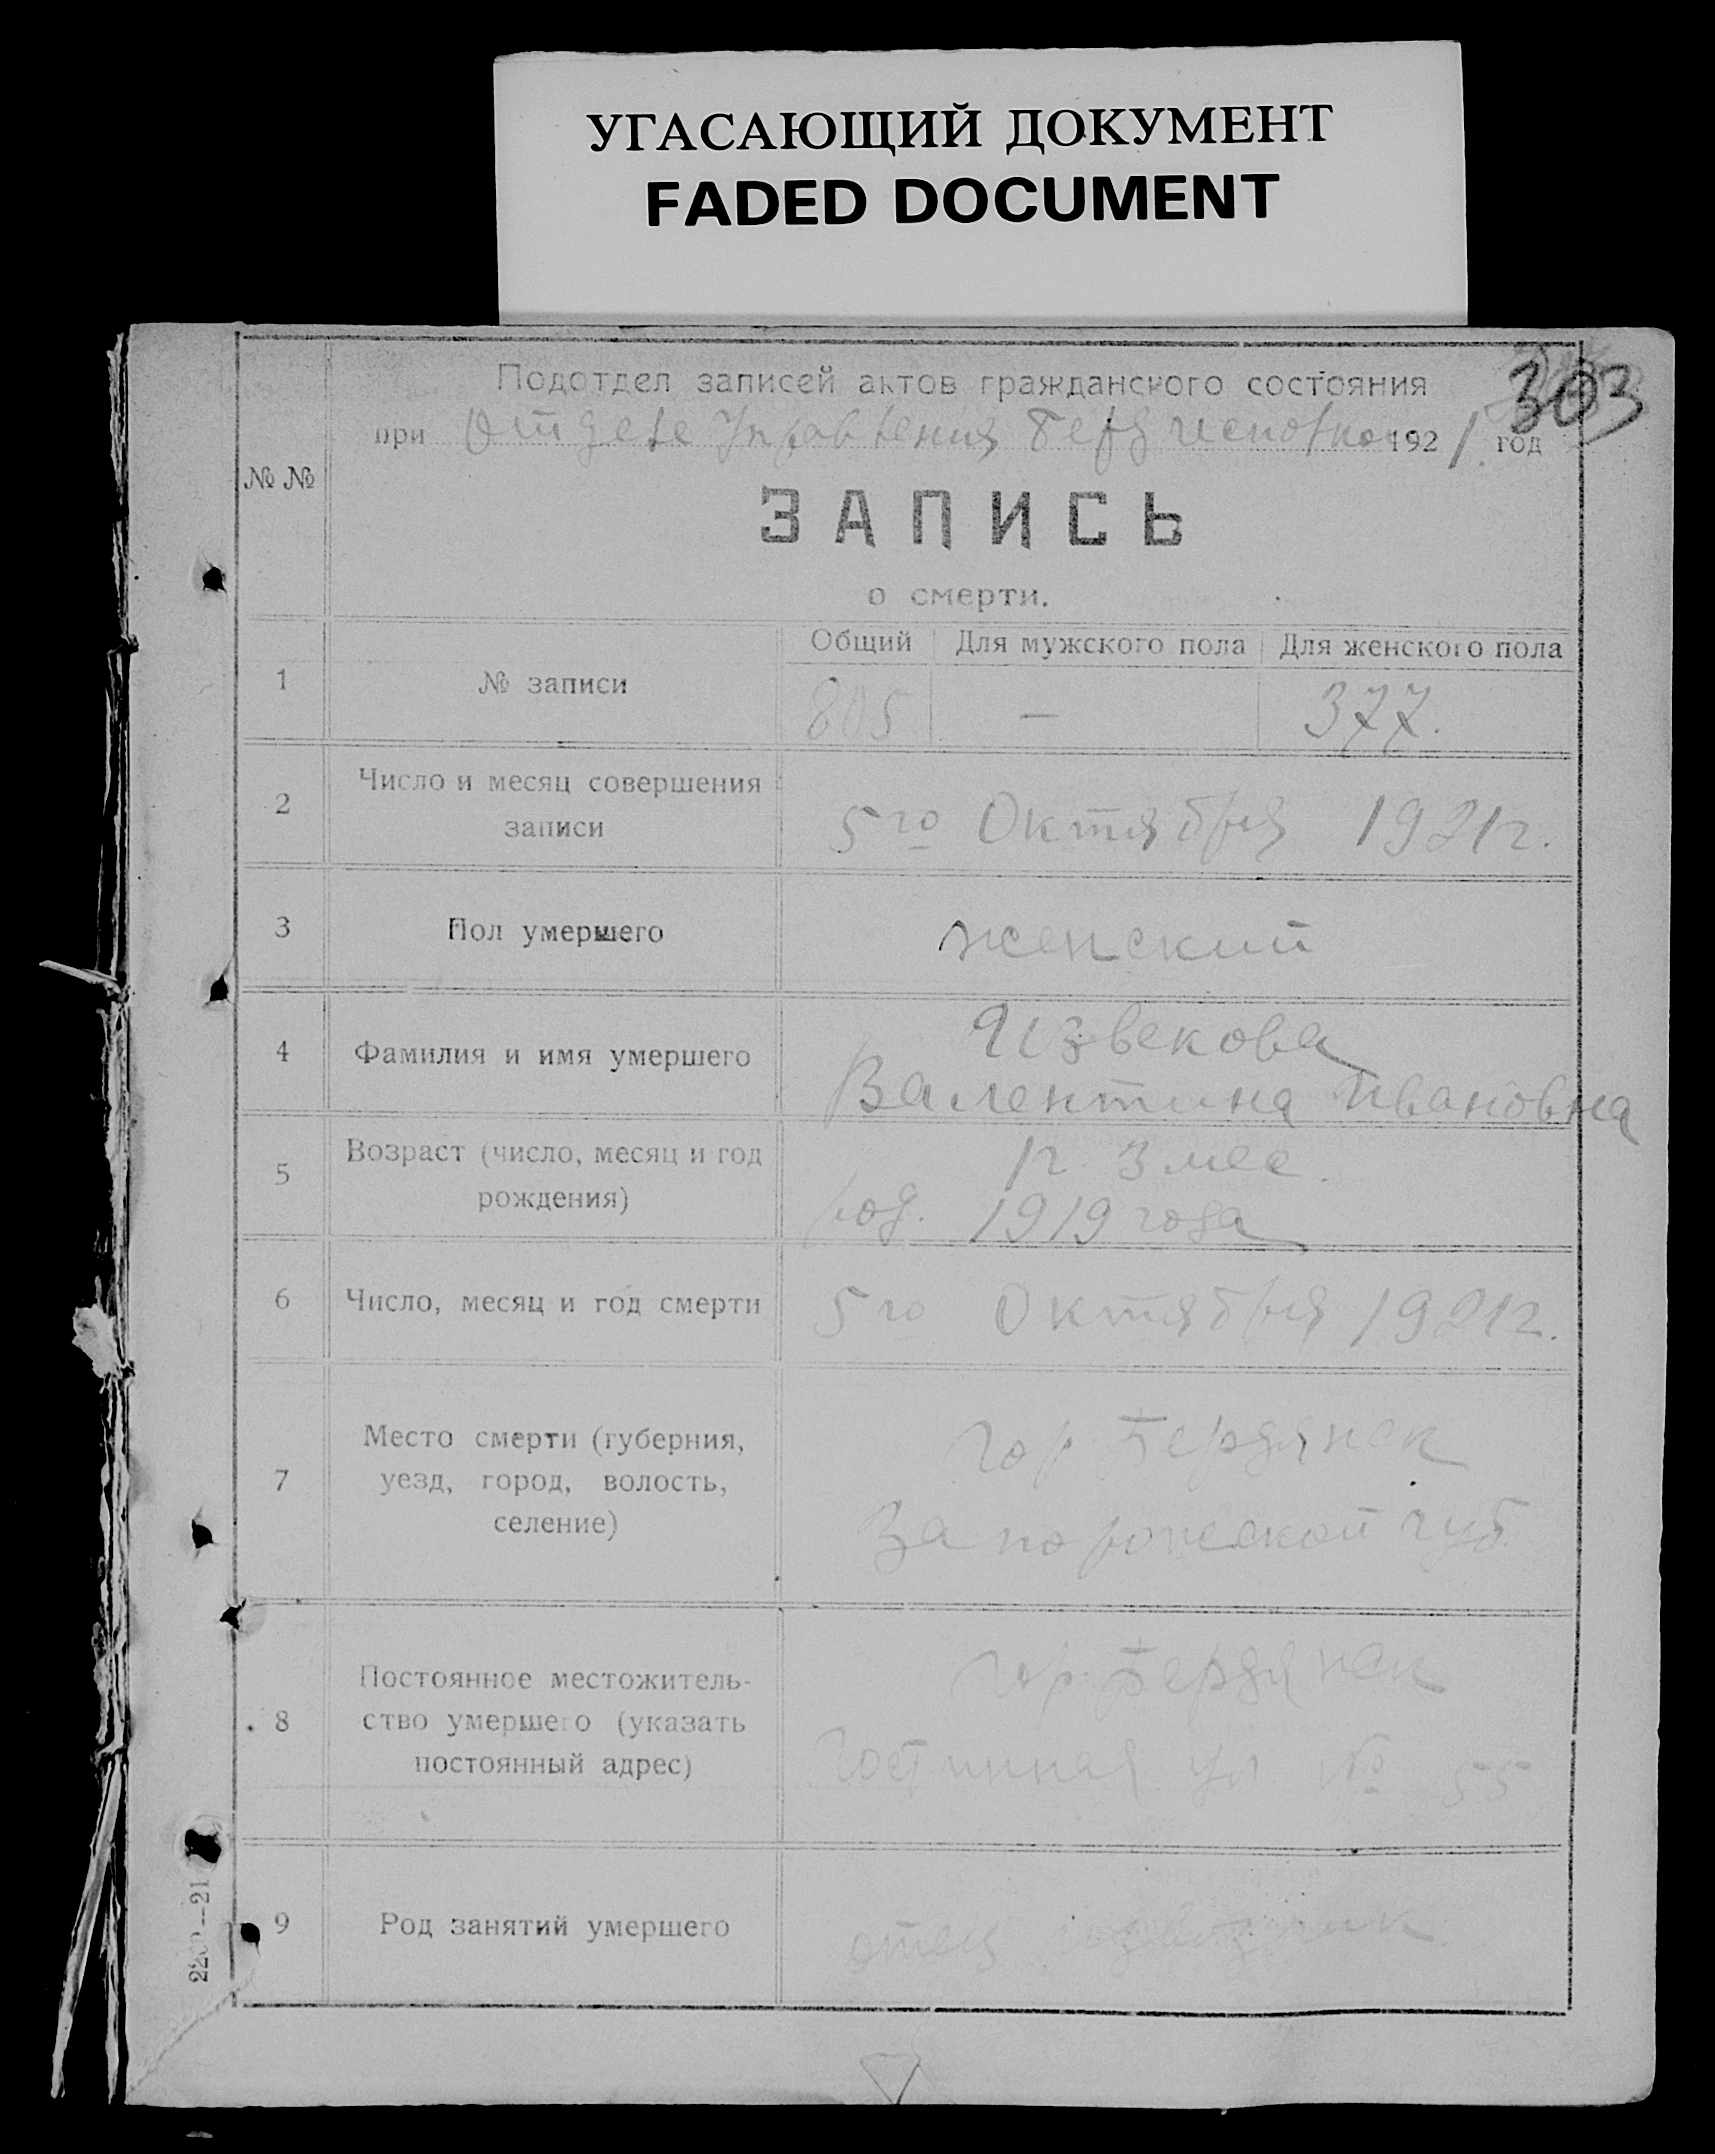 УГАСАЮЩИЙ ДОКУМЕНТ
FADED DOCUMENT
303
Подотдел записей актов гражданского состояния
при Отделе Управления Берд исполкома 1921 год
№ №
ЗАПИСЬ
о смерти.
1 № записи
Общий Для мужского пола Для женского пола
805 — 377.
2 Число и месяц совершения
записи
5го Октября 1921г.
3 Пол умершего женский
4 Фамилия и имя умершего
Извекова
Валентина Ивановна
5 Возраст (число, месяц и год
рождения)
1г. 3 мес.
род. 1919 года
6 Число, месяц и год смерти 5го Октября 1921г.
7 Место смерти (губерния,
уезд, город, волость,
селение)
гор Бердянск
Запорожской губ
8 Постоянное местожитель-
ство умершего (указать
постоянный адрес)
гор. Бердянск
Гостинная ул № 55
9 Род занятий умершего отец